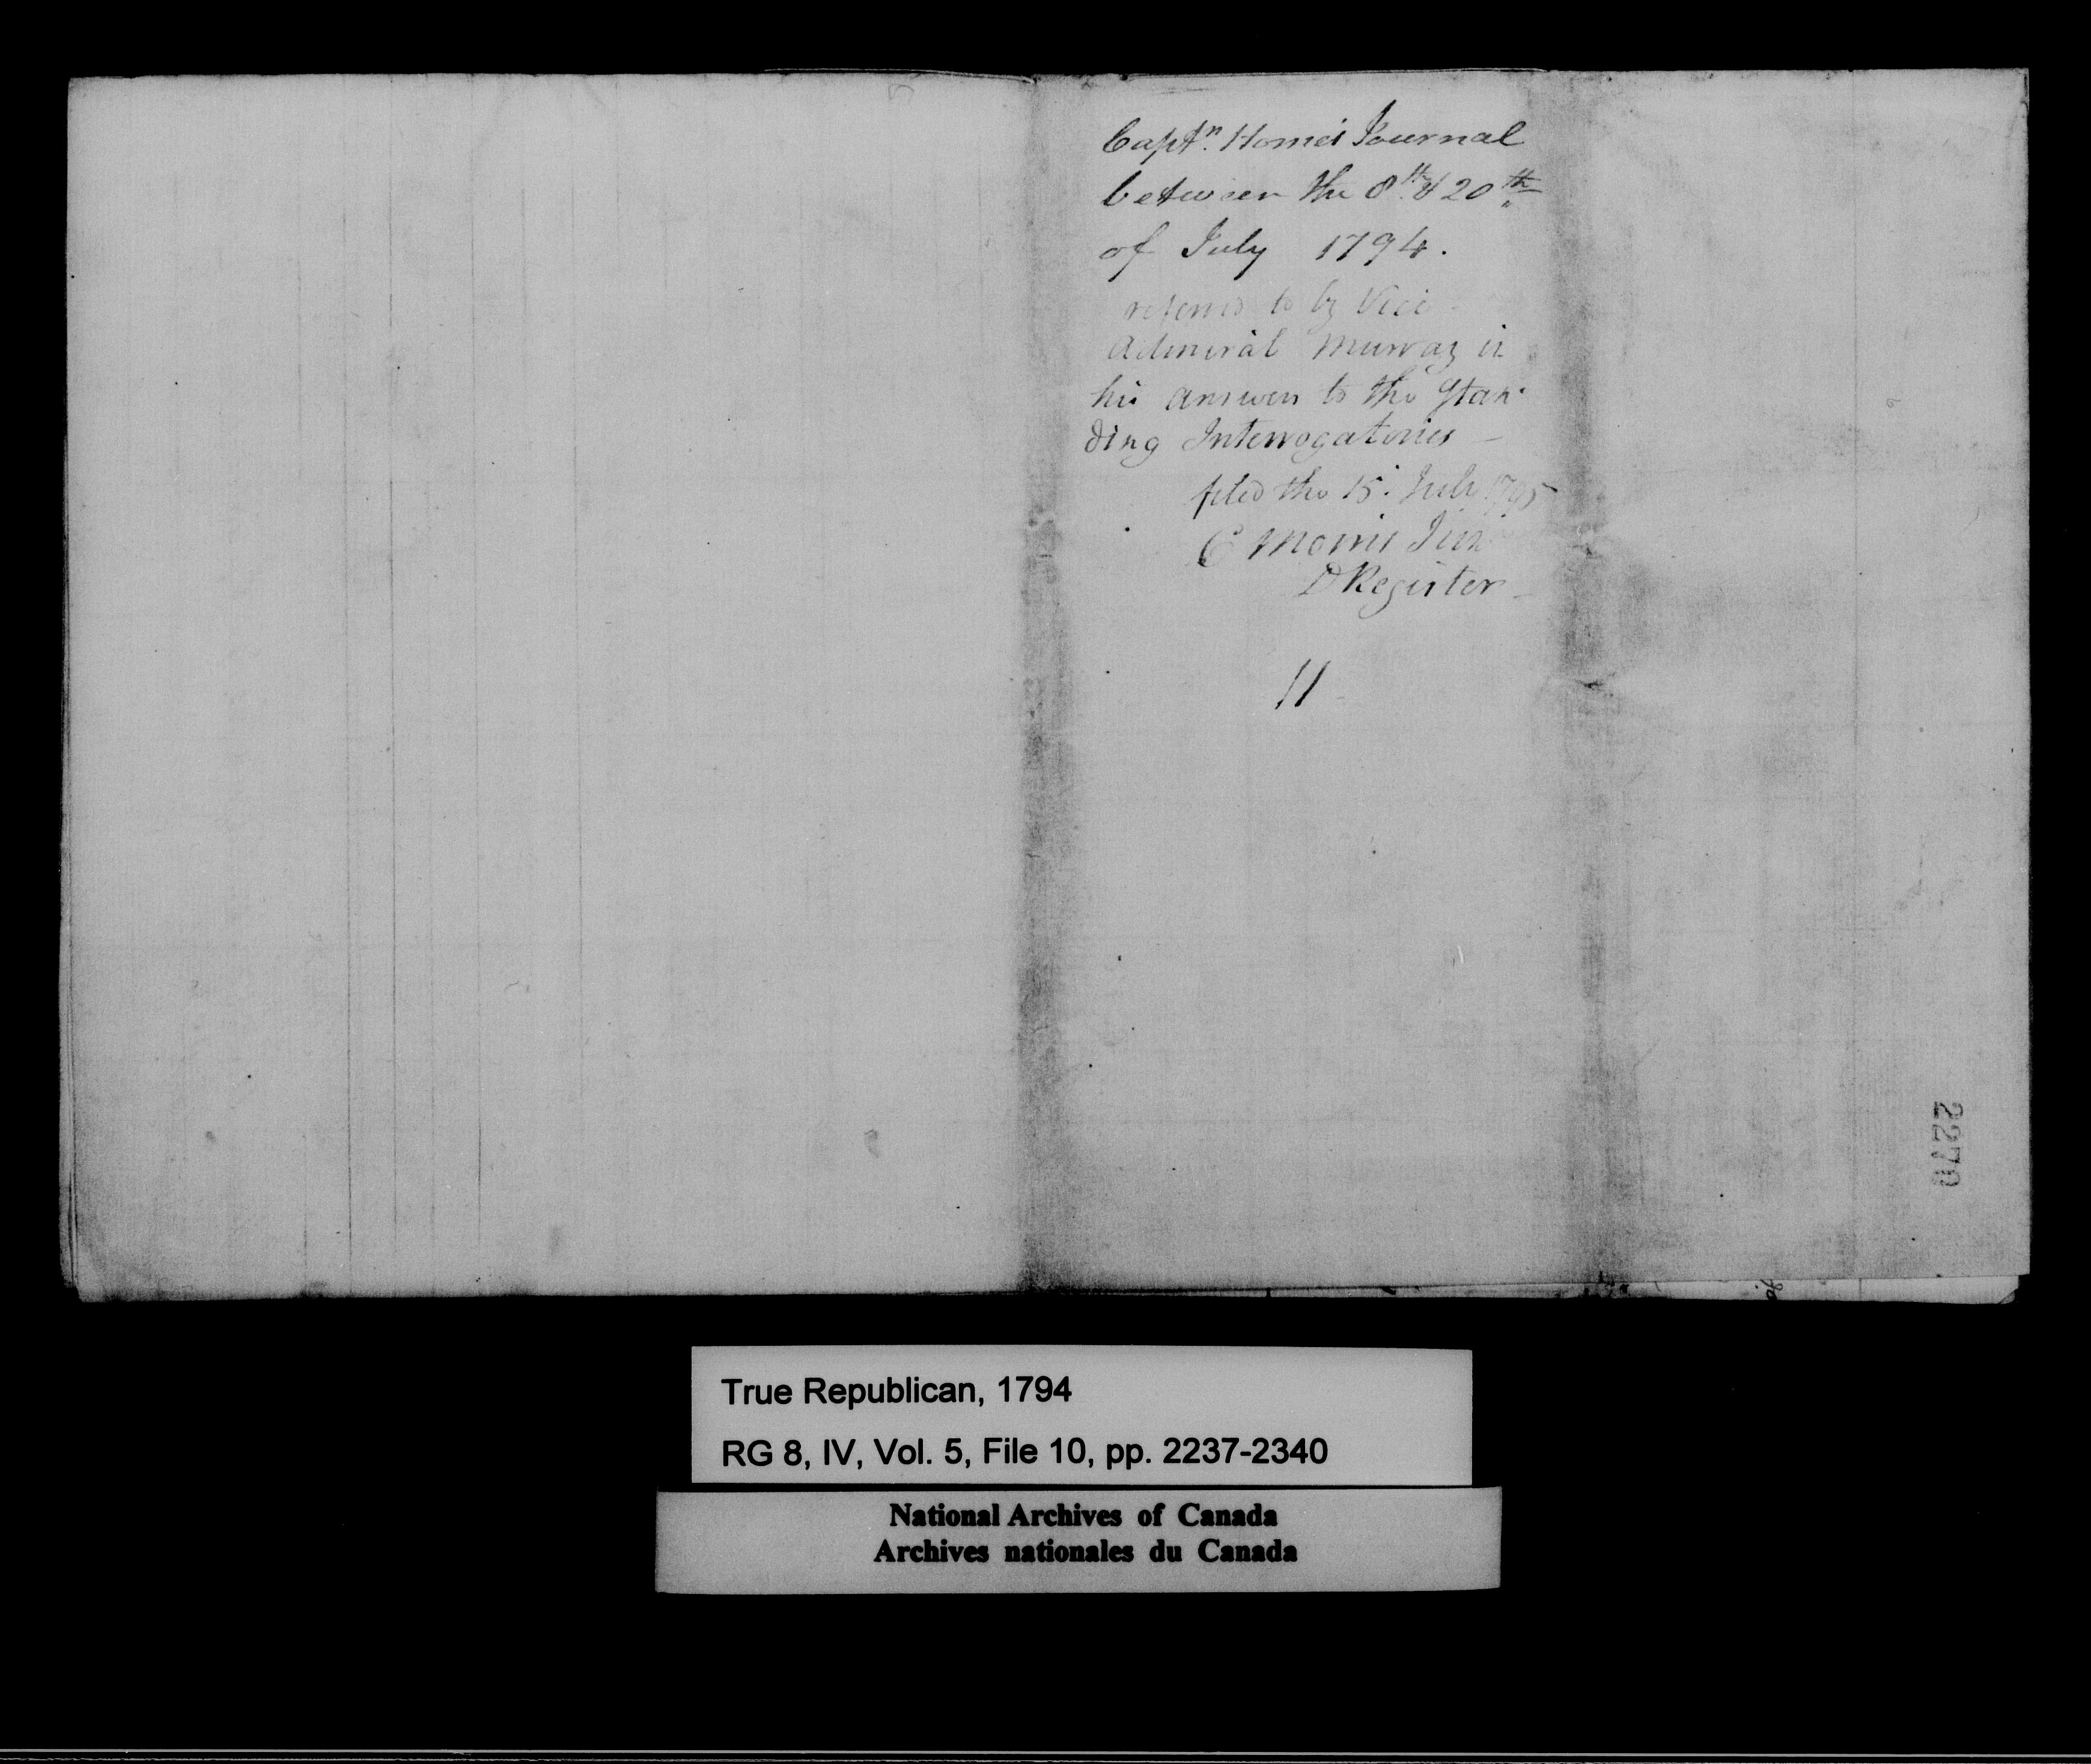 Captn. Home's Journal
between the 8th. & 20th
of July 1794.
referred to by Vice
Admiral Murray in
his answer to the Stan-
ding Interrogatories —
filed the 15. July 1795
C Morris Jun
D Register
11
2270
True Republican, 1794
RG 8, IV, Vol. 5, File 10, pp. 2237-2340
National Archives of Canada
Archives nationales du Canada